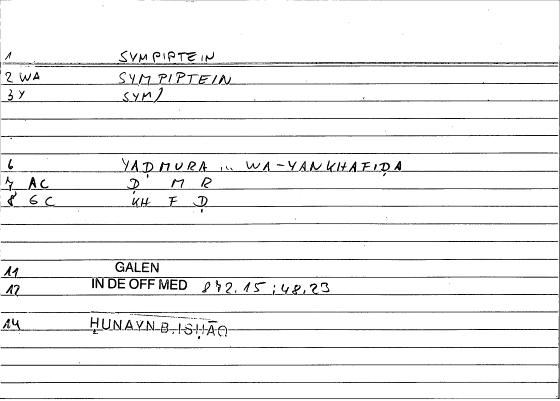 1 SYMPIPTEIN
2 WA SYMPIPTEIN
3 Y SYM)
6 YAḌMURA ... WA-YANKHAFIḌA
7 AC Ḍ M R
8 GC KH F Ḍ
11 GALEN
12 IN DE OFF MED 872.15 ; 48.23
14 ḤUNAYN B. ISḤĀQ